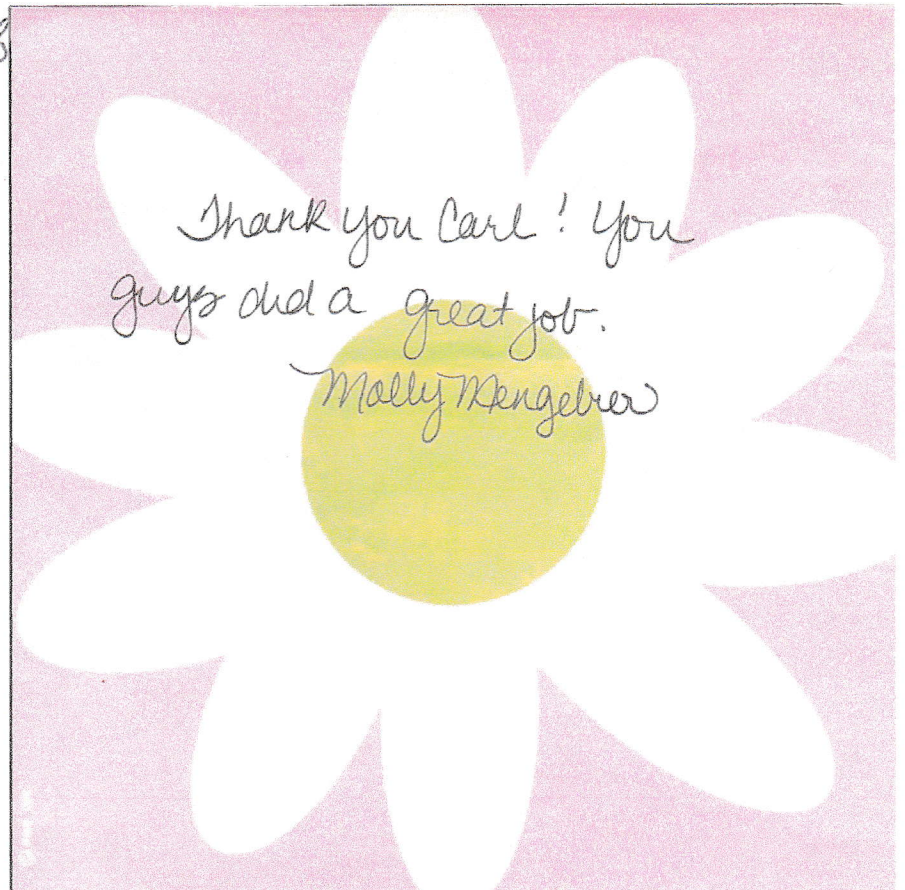 Thank you Carl! You
guys did a great job.
Molly Mengebier